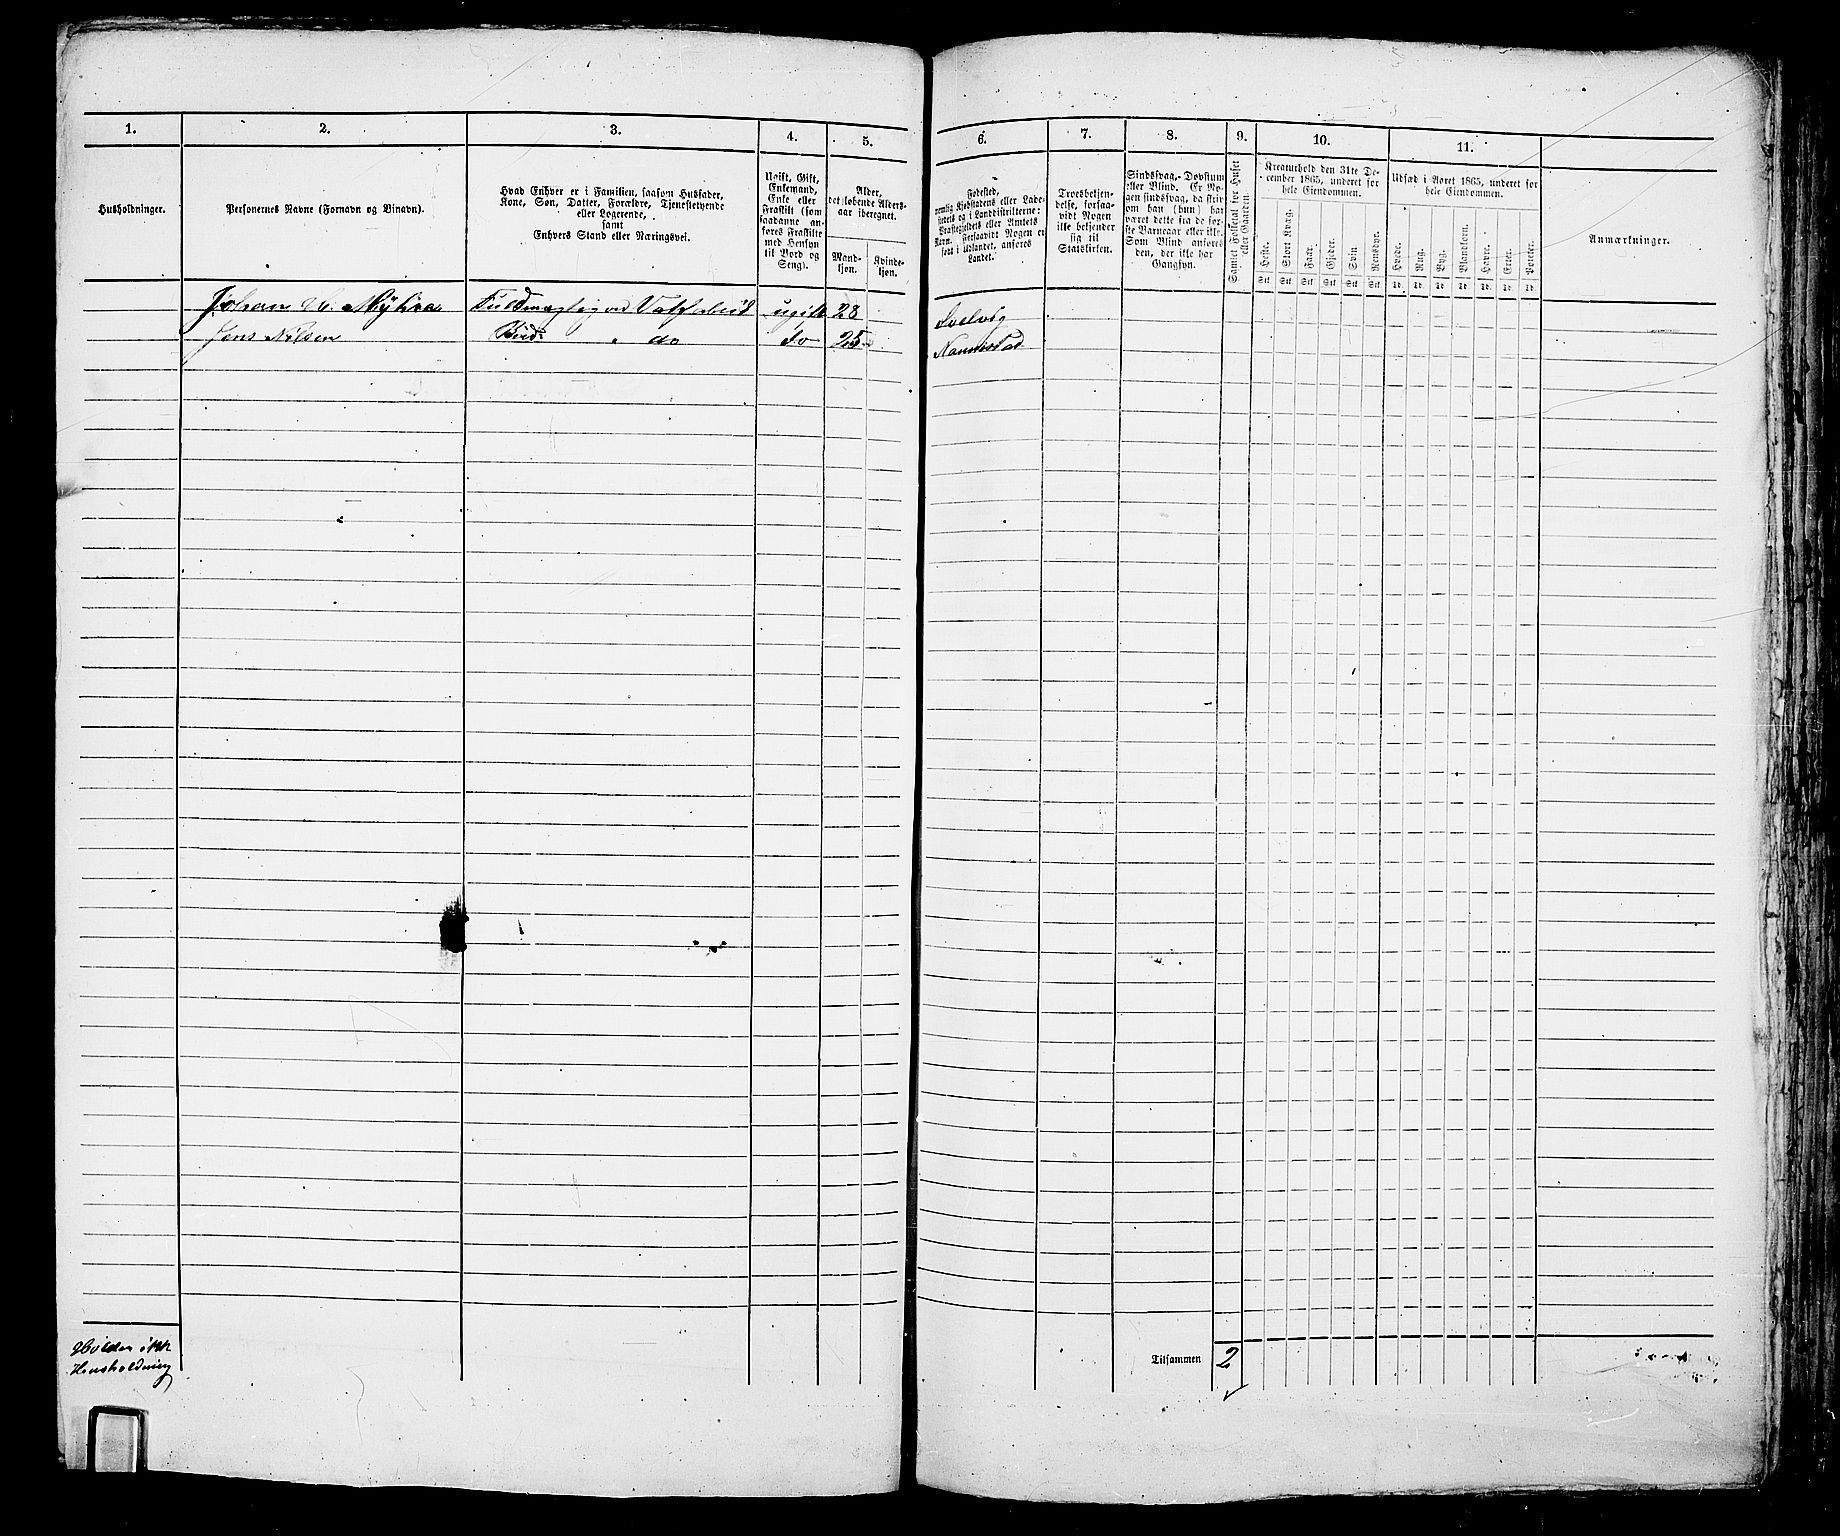 1.
2.
3.
4.
5.
Husholdninger.
Personernes Navne (Fornavn og Tilnavn).
Hvad Enhver er i Familien, saasom Husfader,
Kone, Søn, Datter, Forældre, Tjenestetyende
eller Logerende,
samt
Enhvers Stand eller Næringsvei.
Ugift, Gift,
Enkemand,
Enke eller
Fraskilt (som
saadanne an-
føres Fraskilte
med Hensyn
til Bord og
Seng).
Alder,
det løbende Alders-
aar iberegnet.
Mand-
kjøn.
Kvinde-
kjøn.
Johan Myhra Fuldmægtig ved ugift 28
Jens Nilsen do do 25
Holder ikke
Husholdning
6.
7.
8.
9.
10.
11.
Fødested,
nemlig Kjøbstadens eller Lade-
stedets og i Landdistrikterne:
Præstegjeldets eller Amtets
Navn. Forsaavidt Nogen er
født i Udlandet, anføres
Landet.
Troesbekjen-
delse, forsaa-
vidt Nogen
ikke bekjender
sig til
Statskirken.
Sindssvag, Døvstum
eller Blind. Er No-
gen sindssvag, da skri-
ves om han (hun) har
været dette fra de før-
ste Barneaar eller ikke.
Som Blind anføres
den, der ikke har
Gangsyn.
Samlet Folketal for Huset
eller Gaarden.
Kreaturhold den 31te De-
cember 1865, underet for
hele Eiendommen.
Heste.
Stort Kvæg.
Faar.
Gjeder.
Svin.
Rensdyr.
Stk. Stk. Stk. Stk. Stk. Stk.
Udsæd i Aaret 1865, underet for
hele Eiendommen.
Hvede.
Rug.
Byg.
Blandkorn.
Havre.
Erter.
Poteter.
Td. Td. Td. Td. Td. Td. Td.
Anmærkninger.
Svelvig
Nannestad
Tilsammen 2